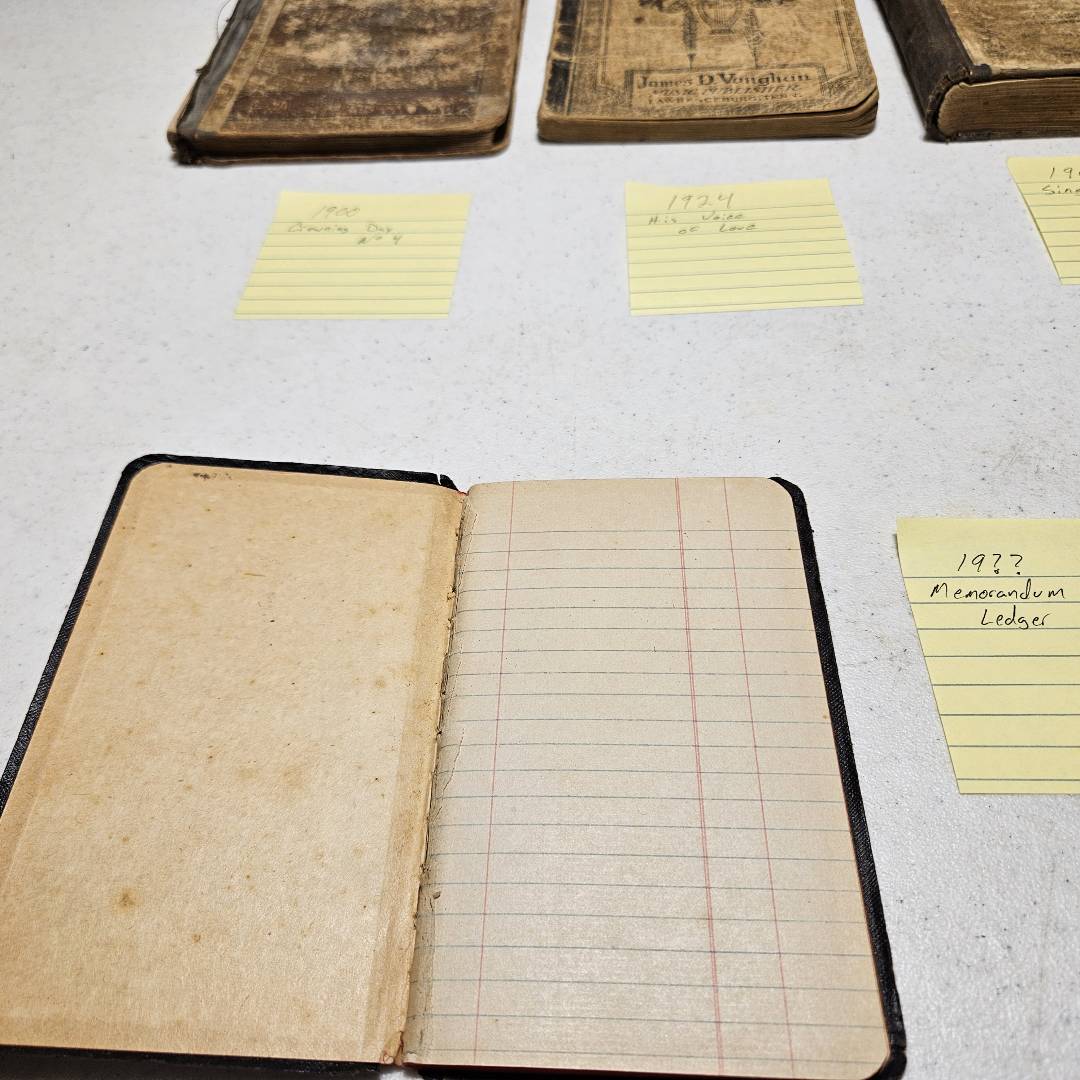 James D. Vaughan
MUSIC PUBLISHER
LAWRENCEBURG, TENN.
1900
Crowning Day
No 4
1924
His Voice
of Love
19
Sing
19??
Memorandum
Ledger